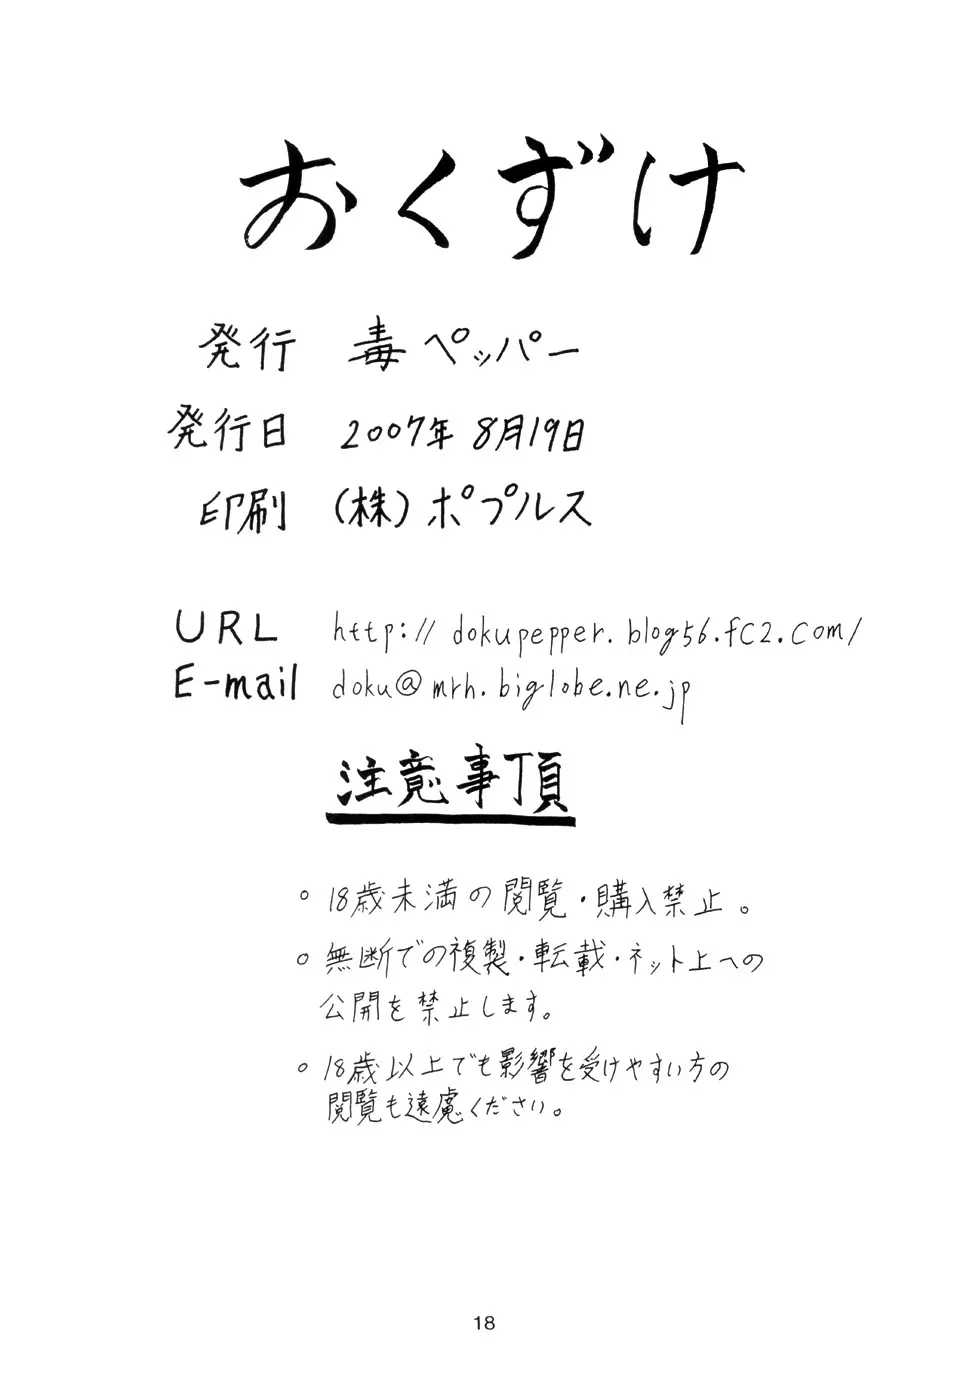 おくずけ
発行 毒ペッパー
発行日 2007年 8月19日
印刷 (株)ポプルス
URL http://dokupepper.blog56.fc2.com/
E-mail doku@mrh.biglobe.ne.jp
注意事項
○ 18歳未満の閲覧・購入禁止。
○ 無断での複製・転載・ネット上への
公開を禁止します。
○ 18歳以上でも影響を受けやすい方の
閲覧も遠慮ください。
18